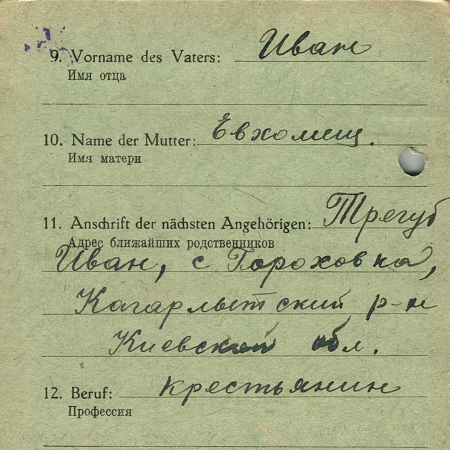 9. Vorname des Vaters: Иван
Имя отца
10. Name der Mutter: Евхомещ.
Имя матери
11. Anschrift der nächsten Angehörigen: Трегуб
Адрес ближайших родственников
Иван, с Гороховка,
Кагарлытский р-н
Киевской обл.
12. Beruf: крестьянин
Профессия